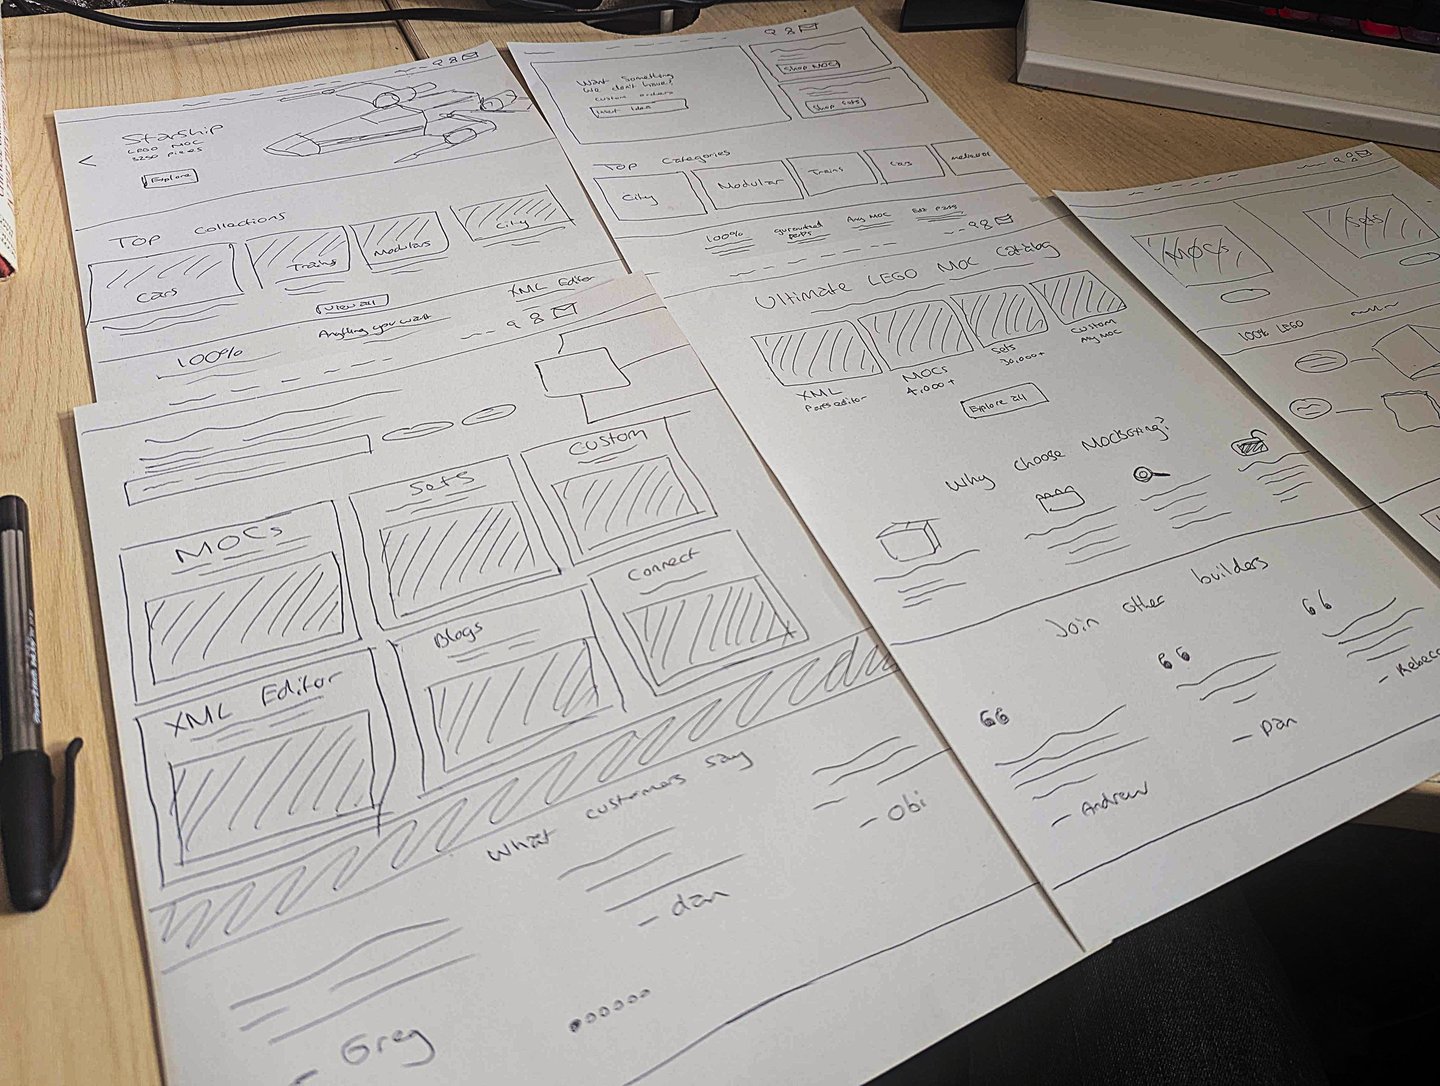 Starship
LEGO MOC
3250 pieces
Explore
Top Collections
Cars
Trains
Modulars
City
View all
100%
Anything you want
XML Editor
Want something
we don't have?
custom orders
Shop MOC
Shop Sets
Top Categories
City
Modular
Trains
Cars
100%
guranteed
parts
Any MOC
Edit Parts
Ultimate LEGO MOC Catalog
XML
Parts editor
MOCs
4,000+
Sets
20,000+
Custom
Any MOC
Explore all
Why choose MOCBOXING?
Join other builders
66
- Andrew
66
- Dan
66
MOCs
Sets
100% LEGO
MOCs
Sets
Custom
XML Editor
Blogs
Connect
What customers say
- Greg
- dan
- Obi